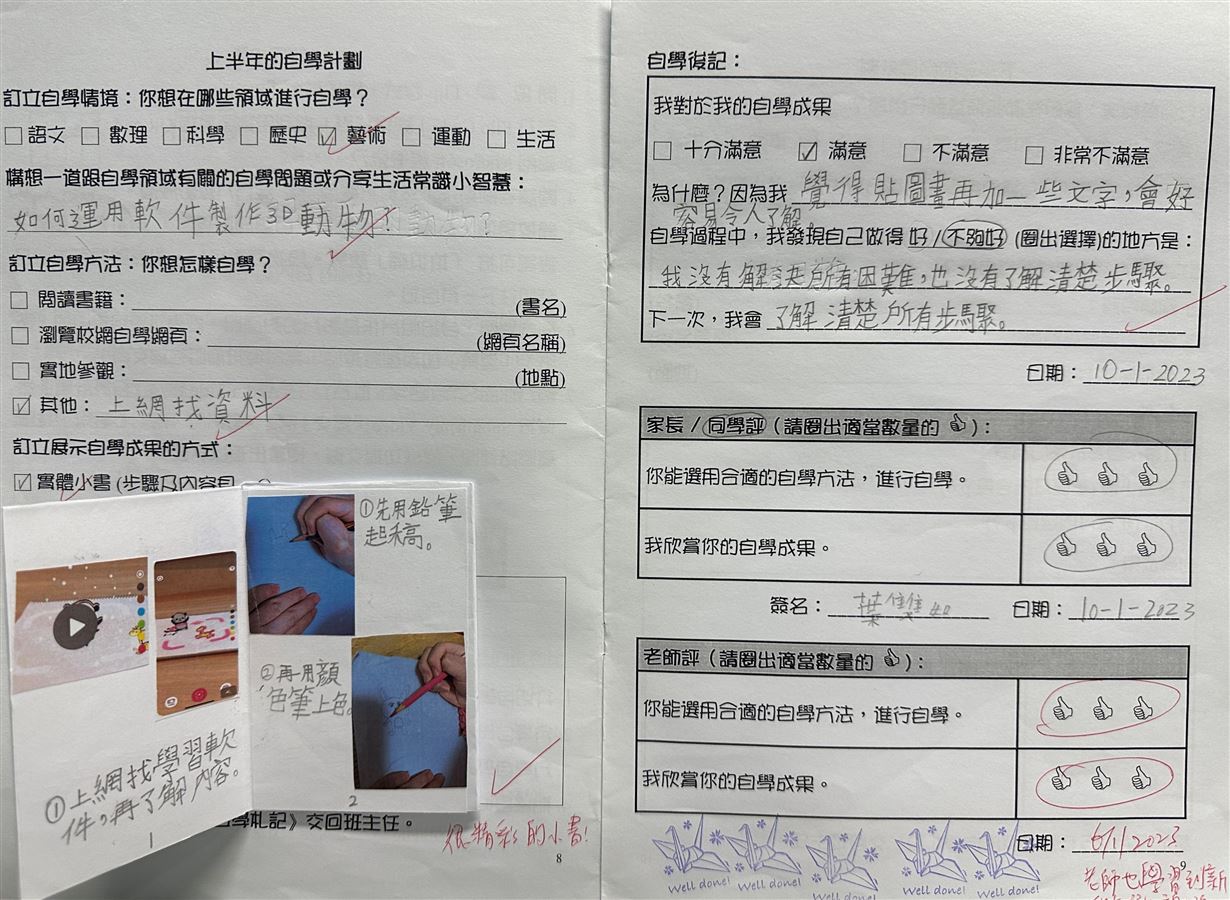 上半年的自學計劃
訂立自學情境：你想在哪些領域進行自學？
□語文 □數理 □科學 □歷史 ☑藝術 □運動 □生活
構想一道跟自學領域有關的自學問題或分享生活常識小智慧：
如何運用軟件製作3D動物？
訂立自學方法：你想怎樣自學？
□ 閱讀書籍： (書名)
□ 瀏覽校網自學網頁： (網頁名稱)
□ 實地參觀： (地點)
☑ 其他：上網找資料
訂立展示自學成果的方式：
☑ 實體小書 (步驟及內容自
①上網找學習軟
件，再了解內容。
1
①先用鉛筆
起稿。
②再用顏
色筆上色。
2
學札記》交回班主任。
很精彩的小書!
8
自學後記：
我對於我的自學成果
□ 十分滿意 ☑ 滿意 □ 不滿意 □ 非常不滿意
為什麼？因為我覺得貼圖畫再加一些文字，會好
容易令人了解。
自學過程中，我發現自己做得好/不夠好 (圈出選擇)的地方是：
我沒有解決所有困難，也沒有了解清楚步驟。
下一次，我會了解清楚所有步驟。
日期：10-1-2023
家長 / 同學評 (請圈出適當數量的 👍)：
你能選用合適的自學方法，進行自學。 👍 👍 👍
我欣賞你的自學成果。 👍 👍 👍
簽名： 葉雙 日期：10-1-2023
老師評 (請圈出適當數量的 👍)：
你能選用合適的自學方法，進行自學。 👍 👍 👍
我欣賞你的自學成果。 👍 👍 👍
日期：6/1/2023
Well done! Well done! Well done! Well done! Well done!
9
老師也學習到新